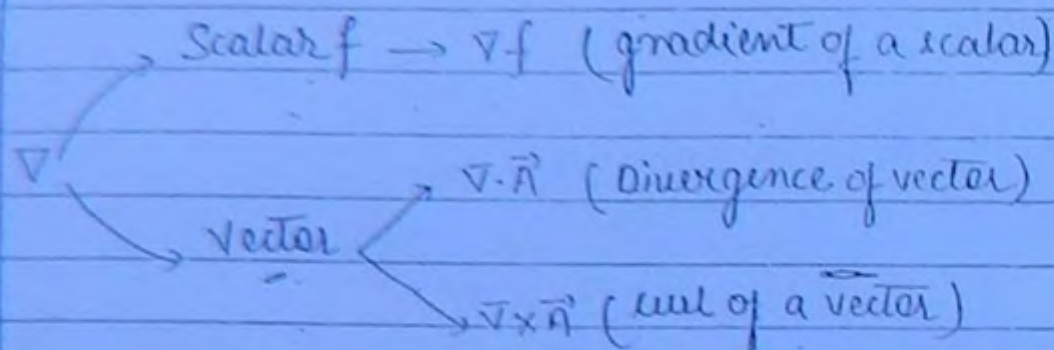 Scalar f → ∇f (gradient of a scalar)
∇
∇·A⃗ (Divergence of vector)
Vector
∇×A⃗ (curl of a vector)